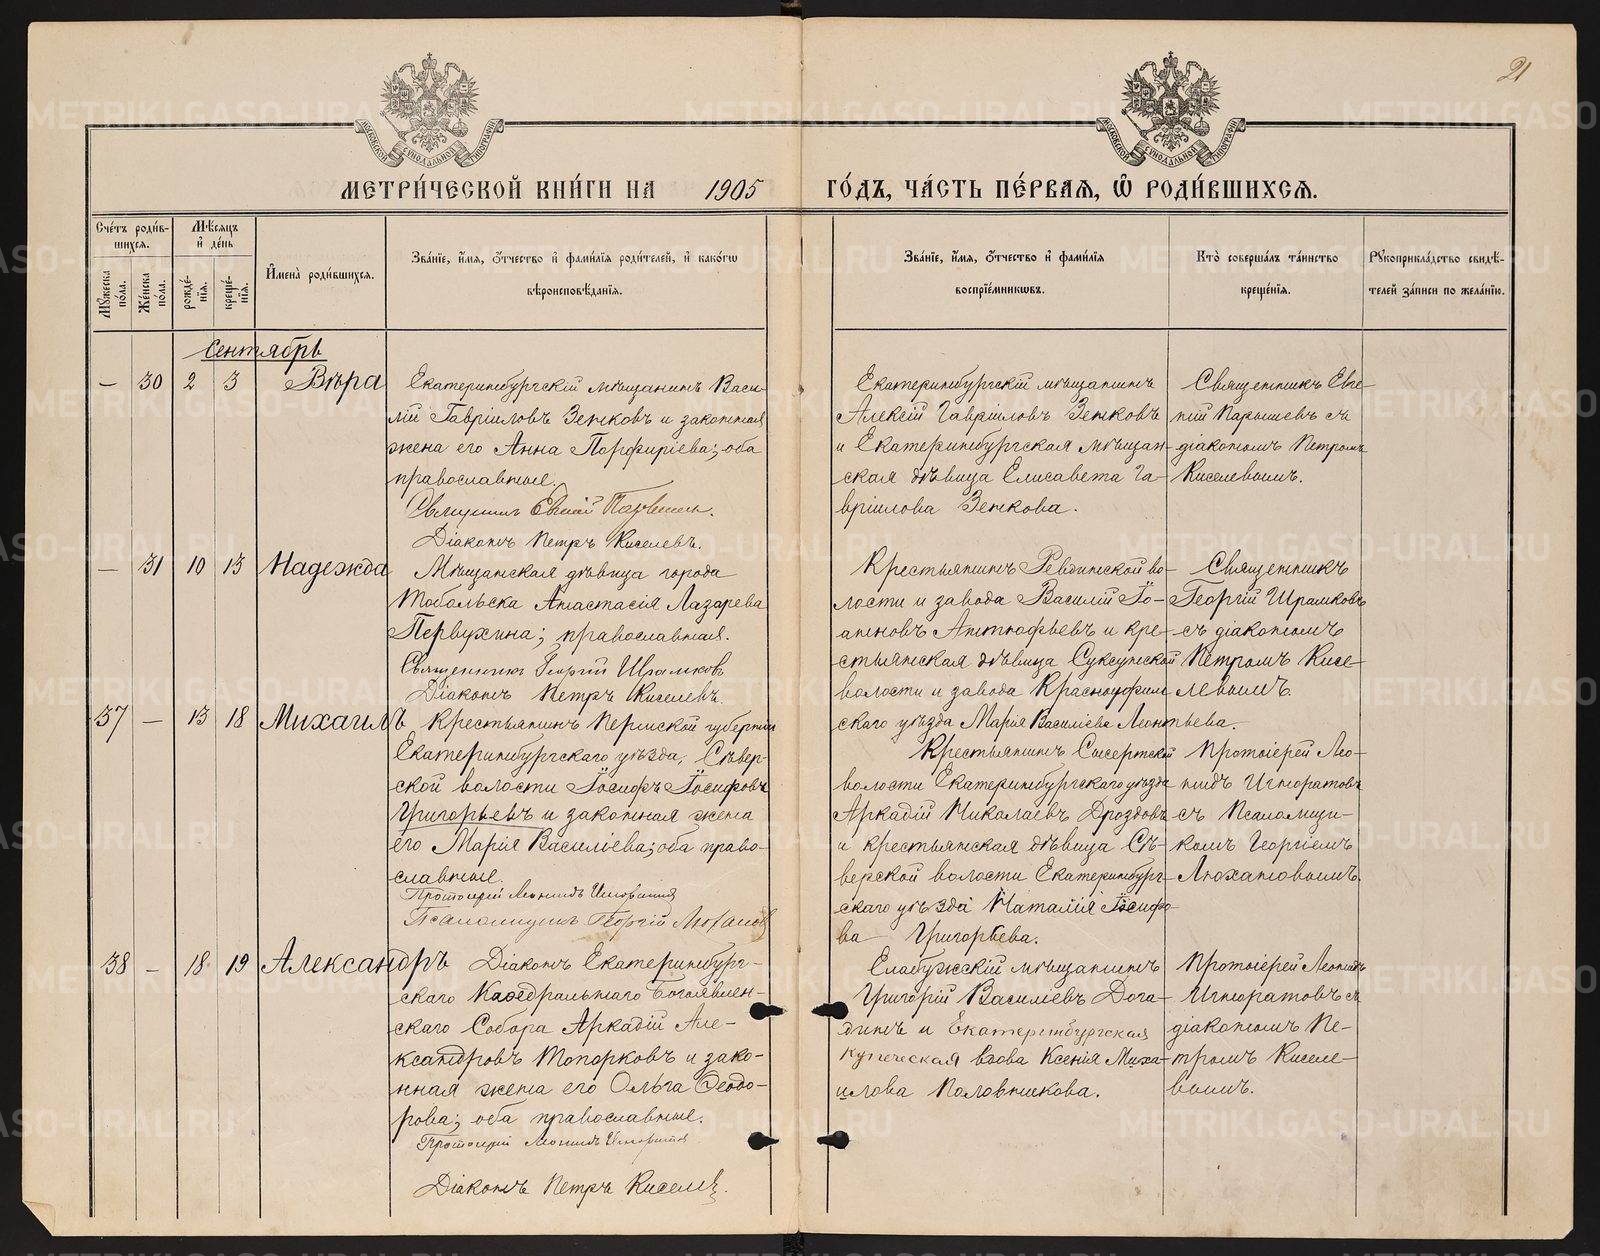 21
МОСКОВСКОЙ СѴНОДАЛЬНОЙ ТИПОГРАФІИ
МОСКОВСКОЙ СѴНОДАЛЬНОЙ ТИПОГРАФІИ
МЕТРИ́ЧЕСКОЙ КНИ́ГИ НА 1905 ГО́ДЪ, ЧА́СТЬ ПЕ́РВАѦ, Ѡ҆ РОДИ́ВШИХСѦ.
Сче́тъ роди́в-
шихсѧ.
Мꙋ́жеска по́ла.
Же́нска по́ла.
Мѣ́сѧцъ
и҆ де́нь
рожде́-
нїѧ.
креще́-
нїѧ.
И҆мена̀ роди́вшихсѧ.
Зва́нїе, и҆́мѧ, ѻ҆́тчество и҆ фами́лїѧ роди́телей, и҆ како́гѡ
вѣроисповѣ́данїѧ.
Зва́нїе, и҆́мѧ, ѻ҆́тчество и҆ фами́лїѧ
воспрїе́мникѡвъ.
Кто̀ соверша́лъ та́инство
креще́нїѧ.
Рꙋкоприкла́дство свидѣ́-
телей за́писи по жела́нїю.
Сентябрь
— 30 2 3 Вѣра
Екатеринбургскій мѣщанинъ Васи-
лій Гавріиловъ Зенковъ и законная
жена его Анна Порфиріева; оба
православные.
Священникъ Евгній Парышевъ.
Діаконъ Петръ Киселевъ.
Екатеринбургскій мѣщанинъ
Алексій Гавріиловъ Зенковъ
и Екатеринбургская мѣщан-
ская дѣвица Елисавета Га-
вріилова Зенкова.
Священникъ Евге-
ній Парышевъ съ
діакономъ Петромъ
Киселевымъ.
— 31 10 13 Надежда
Мѣщанская дѣвица города
Тобольска Анастасія Лазарева
Первухина; православная.
Священникъ Георгій Ирамковъ
Діаконъ Петръ Киселевъ.
Крестьянинъ Ревдинской во-
лости и завода Василій Іо-
анновъ Антюфьевъ и кре-
стьянская дѣвица Суксунской
волости и завода Красноуфим
скаго уѣзда Марія Василіева Леонтьева.
Священникъ
Георгій Ирамковъ
съ діакономъ
Петромъ Кисе-
левымъ.
37 — 13 18 Михаилъ
Крестьянинъ Пермской губерніи
Екатеринбургскаго уѣзда, Сѣвер-
ской волости Іосифъ Іосифовъ
Григорьевъ и законная жена
его Марія Василіева; оба право-
славные.
Протоіерей Леонидъ Игноратовъ
Псаломщикъ Георгій Люхановъ
Крестьянинъ Сысертской
волости Екатеринбургскаго уѣзда
Аркадій Николаевъ Дроздовъ
и крестьянская дѣвица Сѣ-
верской волости Екатеринбург-
скаго уѣзда Наталія Іосифо-
ва Григорьева.
Протоіерей Лео-
нидъ Игноратовъ
съ Псаломщи-
комъ Георгіемъ
Люхановымъ.
38 — 18 19 Александръ
Діаконъ Екатеринбург-
скаго Каѳедральнаго Богоявлен-
скаго Собора Аркадій Але-
ксандровъ Топорковъ и зако-
нная жена его Ольга Ѳеодо-
рова; оба православные.
Протоіерей Леонидъ Игноратовъ
Діаконъ Петръ Киселевъ.
Елабужскій мѣщанинъ
Григорій Василіевъ Дога-
динъ и Екатеринбургская
купеческая вдова Ксенія Миха-
илова Половникова.
Протоіерей Леонидъ
Игноратовъ съ
діакономъ Пе-
тромъ Киселе-
вымъ.
METRIKI.GASO-URAL.RU